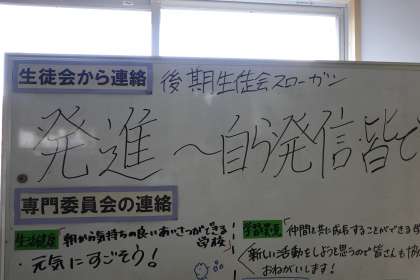 生徒会から連絡 後期生徒会スローガン
発進～自ら発信・皆で
専門委員会の連絡
朝から気持ちの良いあいさつができる学校
元気にすごそう！
仲間と共に成長することができる学
新しい活動をしようと思うので皆さんも
おねがいします！